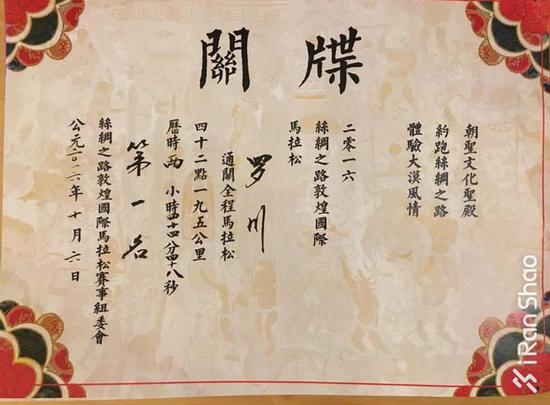 關牒
朝聖文化聖殿
約跑絲綢之路
體驗大漠風情
二零一六
絲綢之路敦煌國際
馬拉松
罗川
通關全程馬拉松
四十二點一九五公里
歷時两小時四十四分四十八秒
第一名
絲綢之路敦煌國際馬拉松賽事組委會
公元二〇一六年十月六日
iRanShao